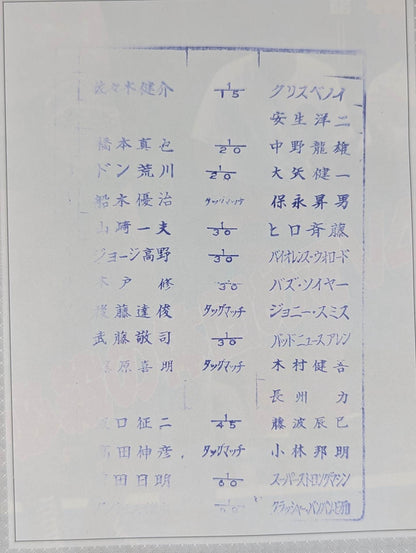 佐々木健介 1/15 クリスベノイ
安生洋二
橋本真也 1/20 中野龍雄
ドン荒川 1/20 大矢健一
船木優治 タッグマッチ 保永昇男
山崎一夫 1/30 ヒロ斉藤
ジョージ高野 1/30 バイオレンス・ウォロード
木戸修 1/30 バズ・ソイヤー
後藤達俊 タッグマッチ ジョニー・スミス
武藤敬司 1/30 バッドニュースアレン
藤原喜明 タッグマッチ 木村健吾
長州力
坂口征二 1/45 藤波辰巳
高田伸彦 タッグマッチ 小林邦明
前田日明 1/60 スーパーストロングマシン
クラッシャー・バンバン・ビガロ